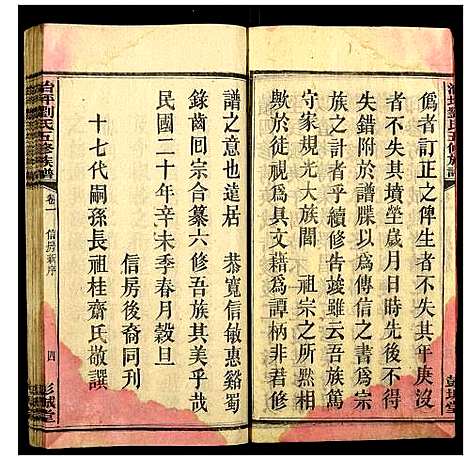 偽者訂正之俾生者不失其年庚沒
者不失其墳塋歲月日時先後不得
失錯附於譜牒以爲傳信之書爲宗
族之計者乎續修告竣雖云吾族篤
守家規光大族閭　祖宗之所黙相
歟於後嗣視爲具文藉爲譚柄非君修
譜之意也遠居　恭寬信敏惠谿蜀
錄齒回宗合纂六修吾族其美乎哉
民國二十年辛未季春月穀旦
信房後裔同刊
十七代嗣孫長祖桂齋氏敬譔
冶坪劉氏五修族譜
卷一　信房新序
四
彭城堂
冶坪劉氏五修族譜
彭城堂